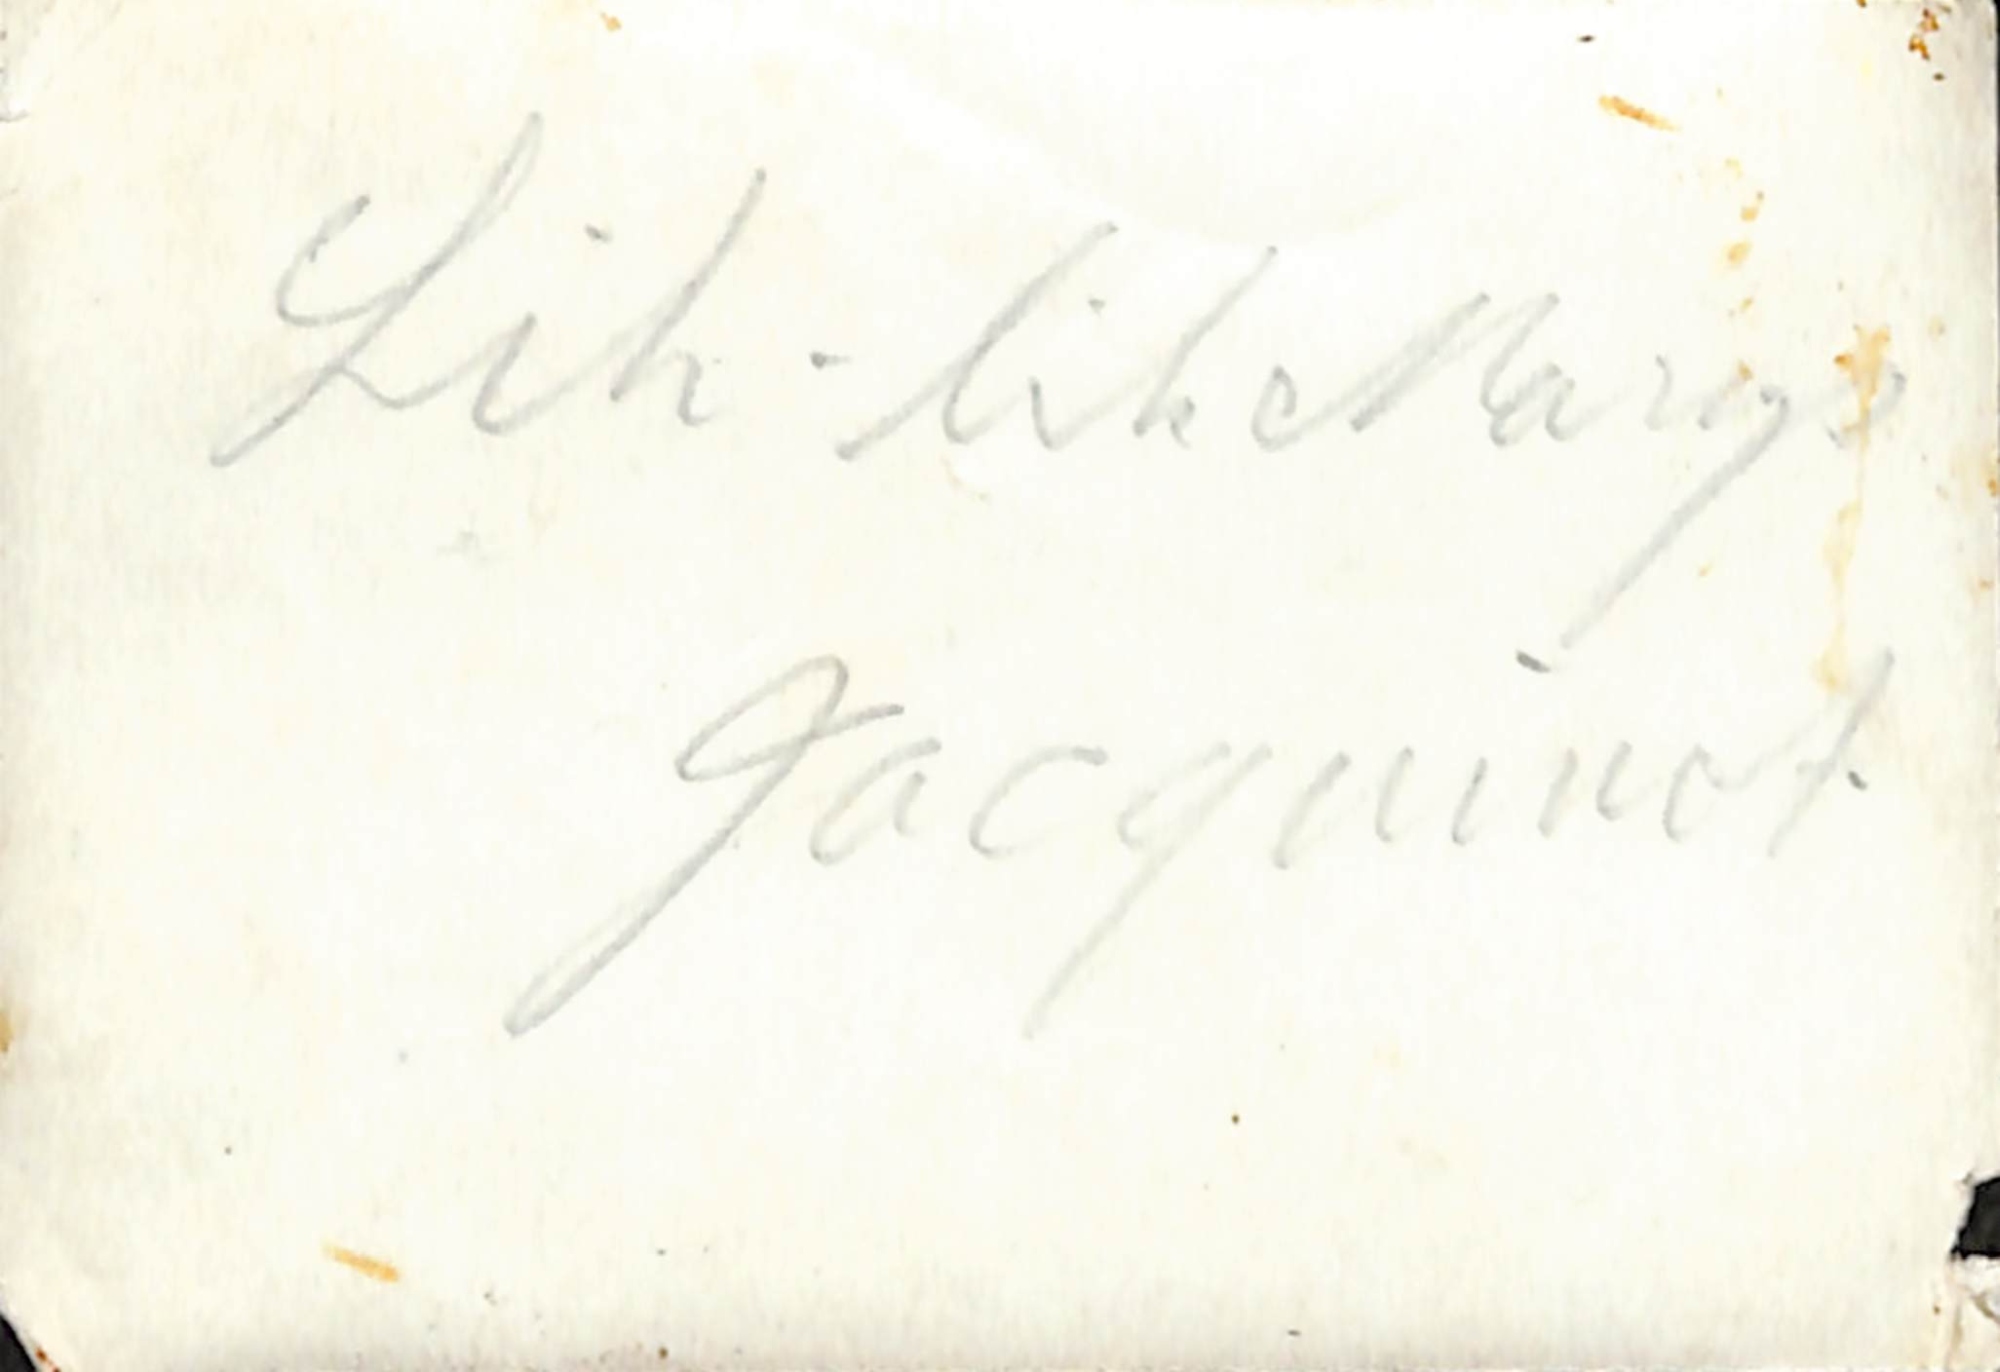 Lih - lih Margo
Jacquinot